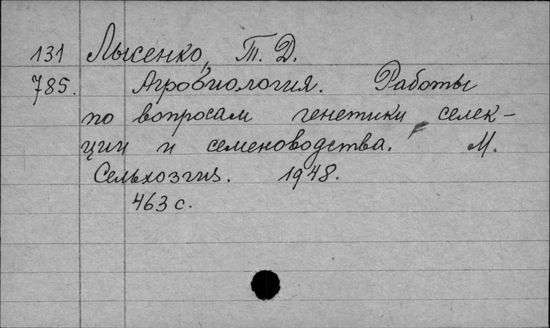 131 Лысенко, Т. Д.
785. Агробиология. Работы
по вопросам генетики, селек-
ции и семеноводства. М.
Сельхозгиз. 1948.
463 с.